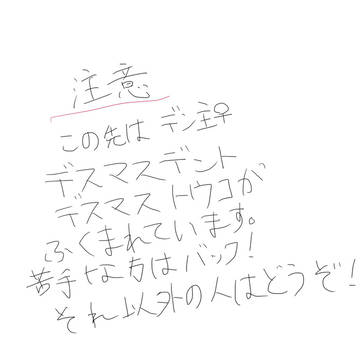 注意
この先は デン主♀
デスマスデント
デスマス トウコが
ふくまれています。
苦手な方はバック!
それ以外の人はどうぞ!